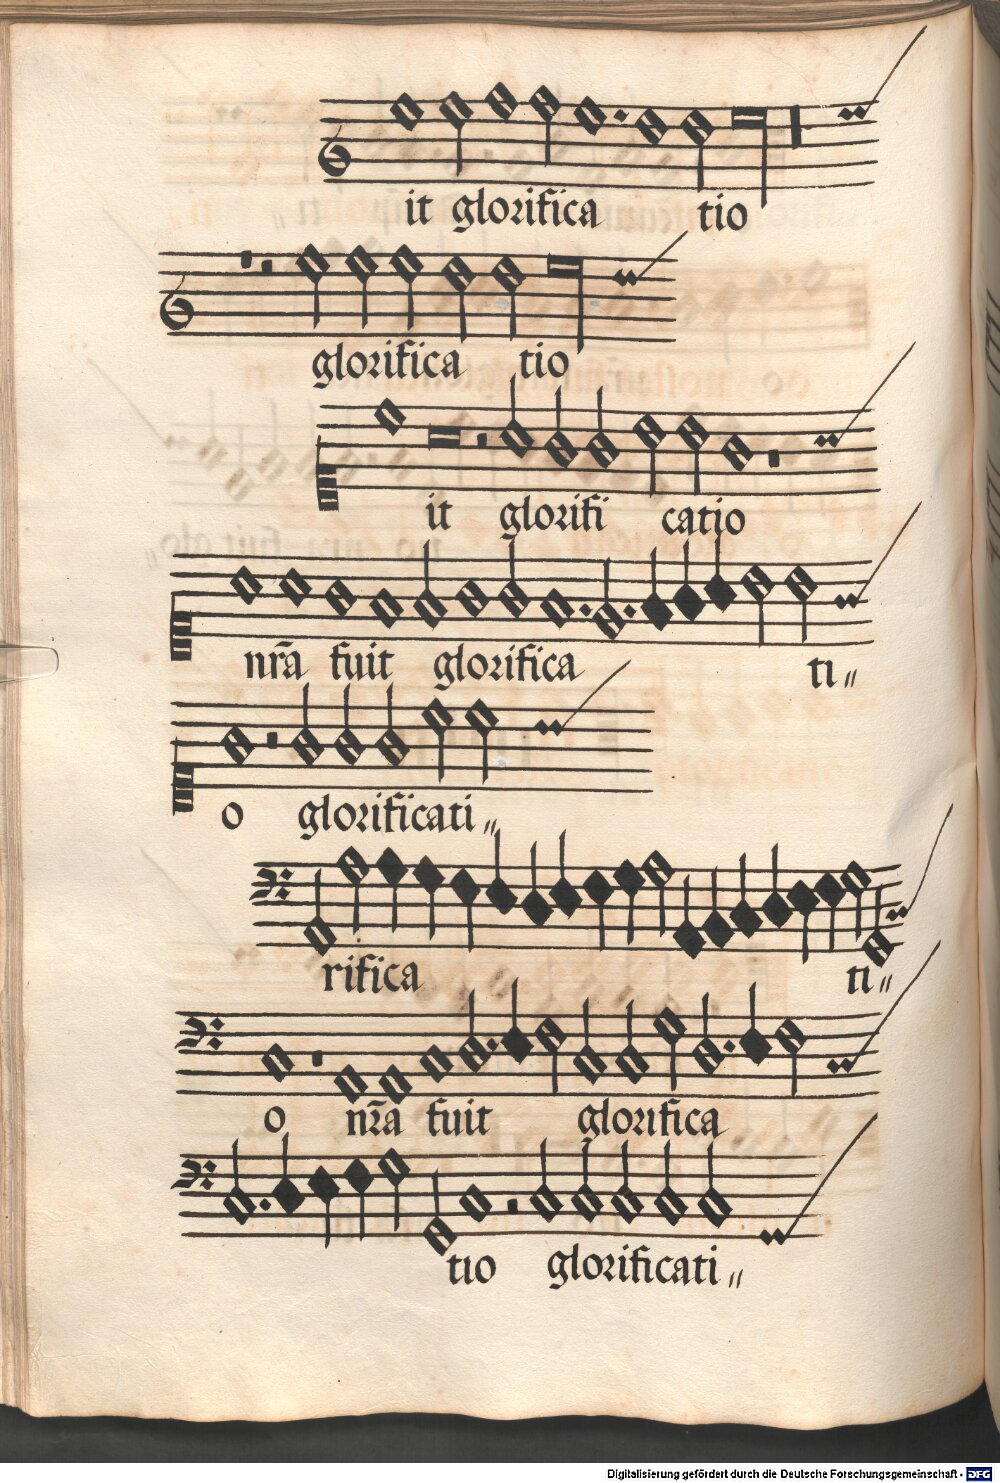 it glorifica tio
glorifica tio
it glorifi catio
nr̃a fuit glorifica ti〃
o glorificati〃
rifica ti〃
o nr̃a fuit glorifica
tio glorificati〃
Digitalisierung gefördert durch die Deutsche Forschungsgemeinschaft - DFG